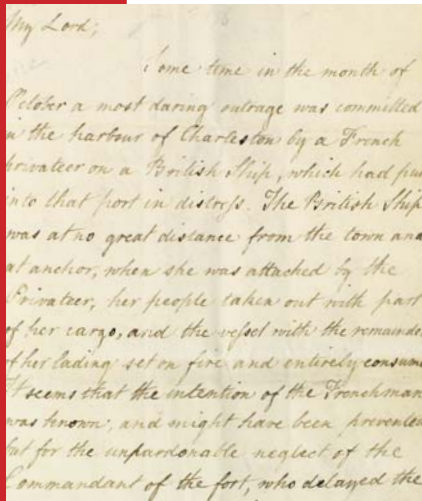 My Lord;
Some time in the month of
October a most daring outrage was committed
in the harbour of Charleston by a French
privateer on a British Ship, which had put
into that port in distress. The British Ship
was at no great distance from the town and
at anchor, when she was attacked by the
Privateer, her people taken out with part
of her cargo, and the vessel with the remainder
of her lading set on fire and entirely consum
It seems that the intention of the Frenchman
was known, and might have been prevented
but for the unpardonable neglect of the
Commandant of the fort, who delayed the